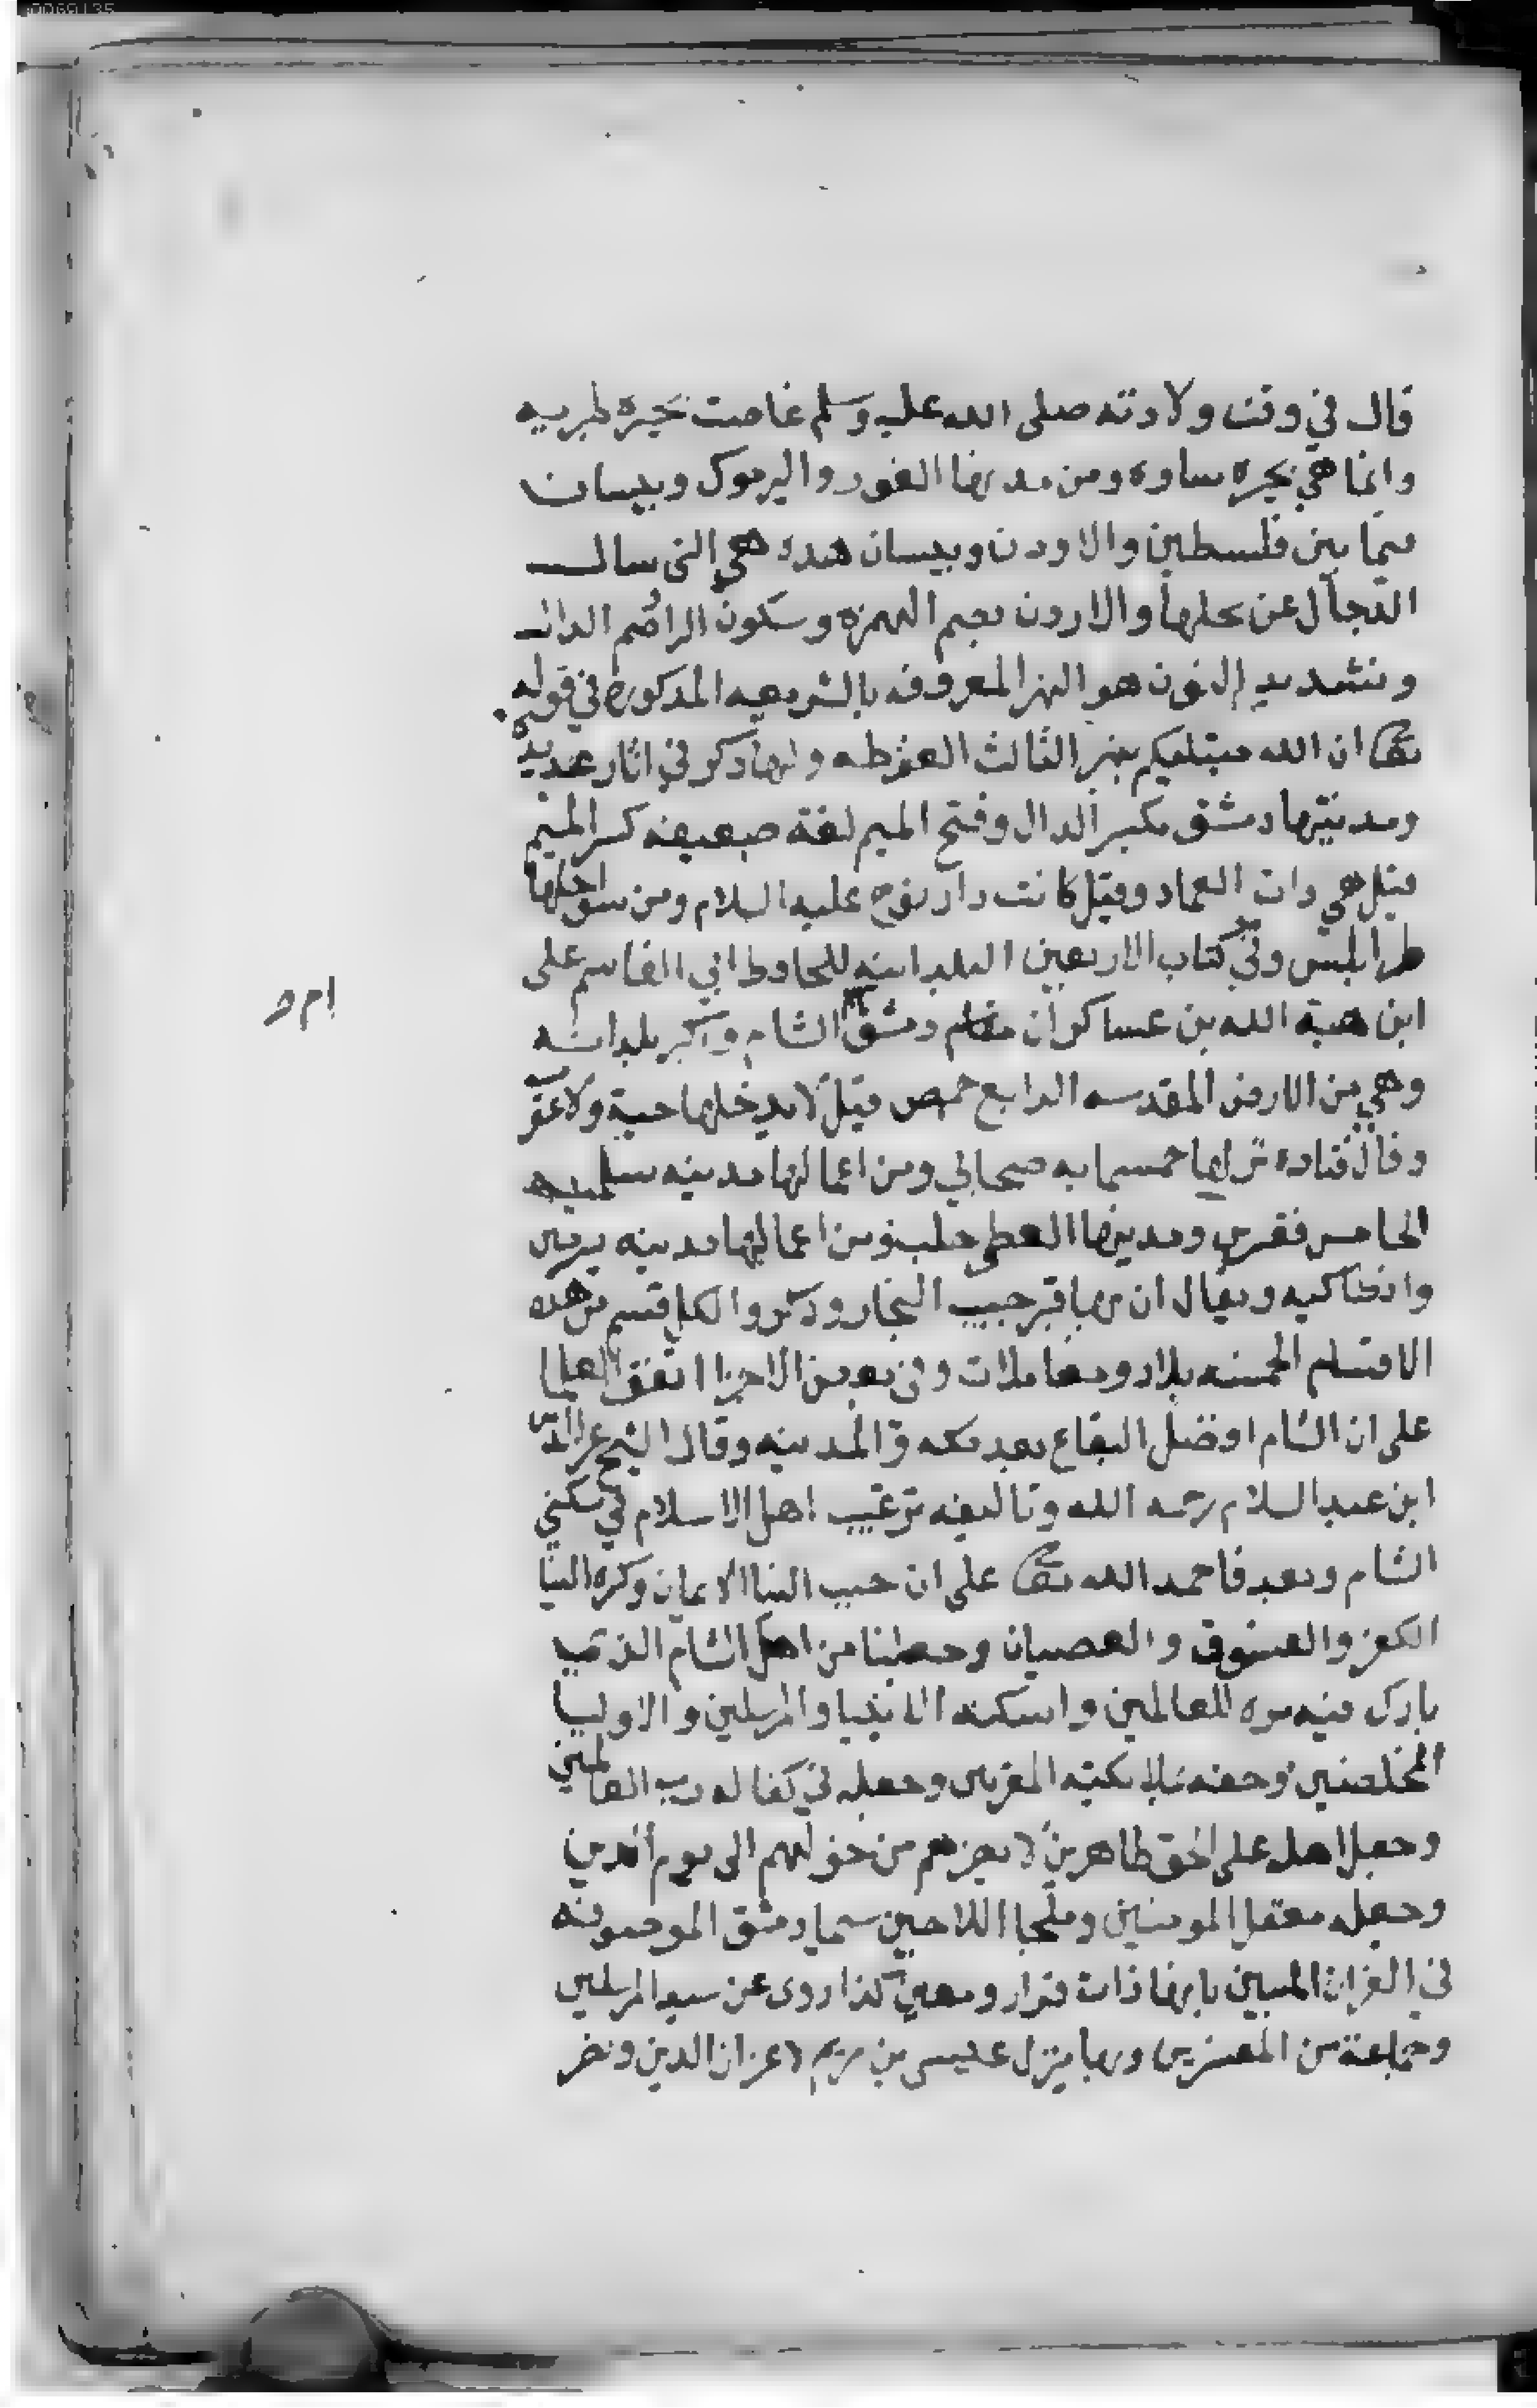 قال في وقت ولادته صلى الله عليه وسلم غاصت بحيرة طبريه
وانما هي بحيره ساوه ومن مدنها الغور واليرموك وبيسان
فيما بين فلسطين والاردن وبيسان هذه هي التي سال
الدجال عن نخلها والاردن بضم الهمزه وسكون الرا ضم الدال
وتشديد النون هو النهر المعروف بالشريعه المذكوره في قوله
تعالى ان الله مبتليكم بنهر الثالث الغوطه ولها ذكر في اثار عديده
ومدينتها دمشق بكسر الدال وفتح الميم لغة ضعيفه كسر الميم
قيل هي ذات العماد وقيل كانت دار نوح عليه السلام ومن سواحلها
طرابلس وفي كتاب الاربعين البلدانيه للحافظ ابي القاسم على
ابن هبة الله بن عساكر ان دمشق الشام واكبر بلدانه
وهي من الارض المقدسه الرابع حمص قيل لا يدخلها حية ولا عقرب
وقال قتاده نزلها خمسمايه صحابي ومن اعمالها مدينه سلميه
الخامس قنسرين ومدينتها العظمى حلب ومن اعمالها مدينه سرمين
وانطاكيه ويقال ان بها قبر حبيب النجار وذكروا لكل قسم من هذه
الاقسام الخمسه بلاد ومعاملات وفي بعض الاجزا اتفق العلما
على ان الشام افضل البقاع بعد مكه والمدينه وقال الشيخ عز الدين
ابن عبد السلام رحمه الله وتاليفه ترغيب اهل الاسلام في سكنى
الشام وبعد فاحمد الله تعالى على ان حبب الينا الايمان وكره الينا
الكفر والفسوق والعصيان وجعلنا من اهل الشام الذي
بارك فيه للعالمين واسكنه الانبيا والمرسلين والاوليا
المخلصين وحفه بملايكته المقربين وجعله في كفاله رب العالمين
وجعل اهله على الحق ظاهرين لا يضرهم من خذلهم الى يوم الدين
وجعله معقل المومنين وملجا اللاجين سيما دمشق الموصوفه
في القران المبين بانها ذات قرار ومعين كذا روى عن سيد المرسلين
وجماعة من المفسرين وبها ينزل عيسى بن مريم لاعزاز الدين ونصر